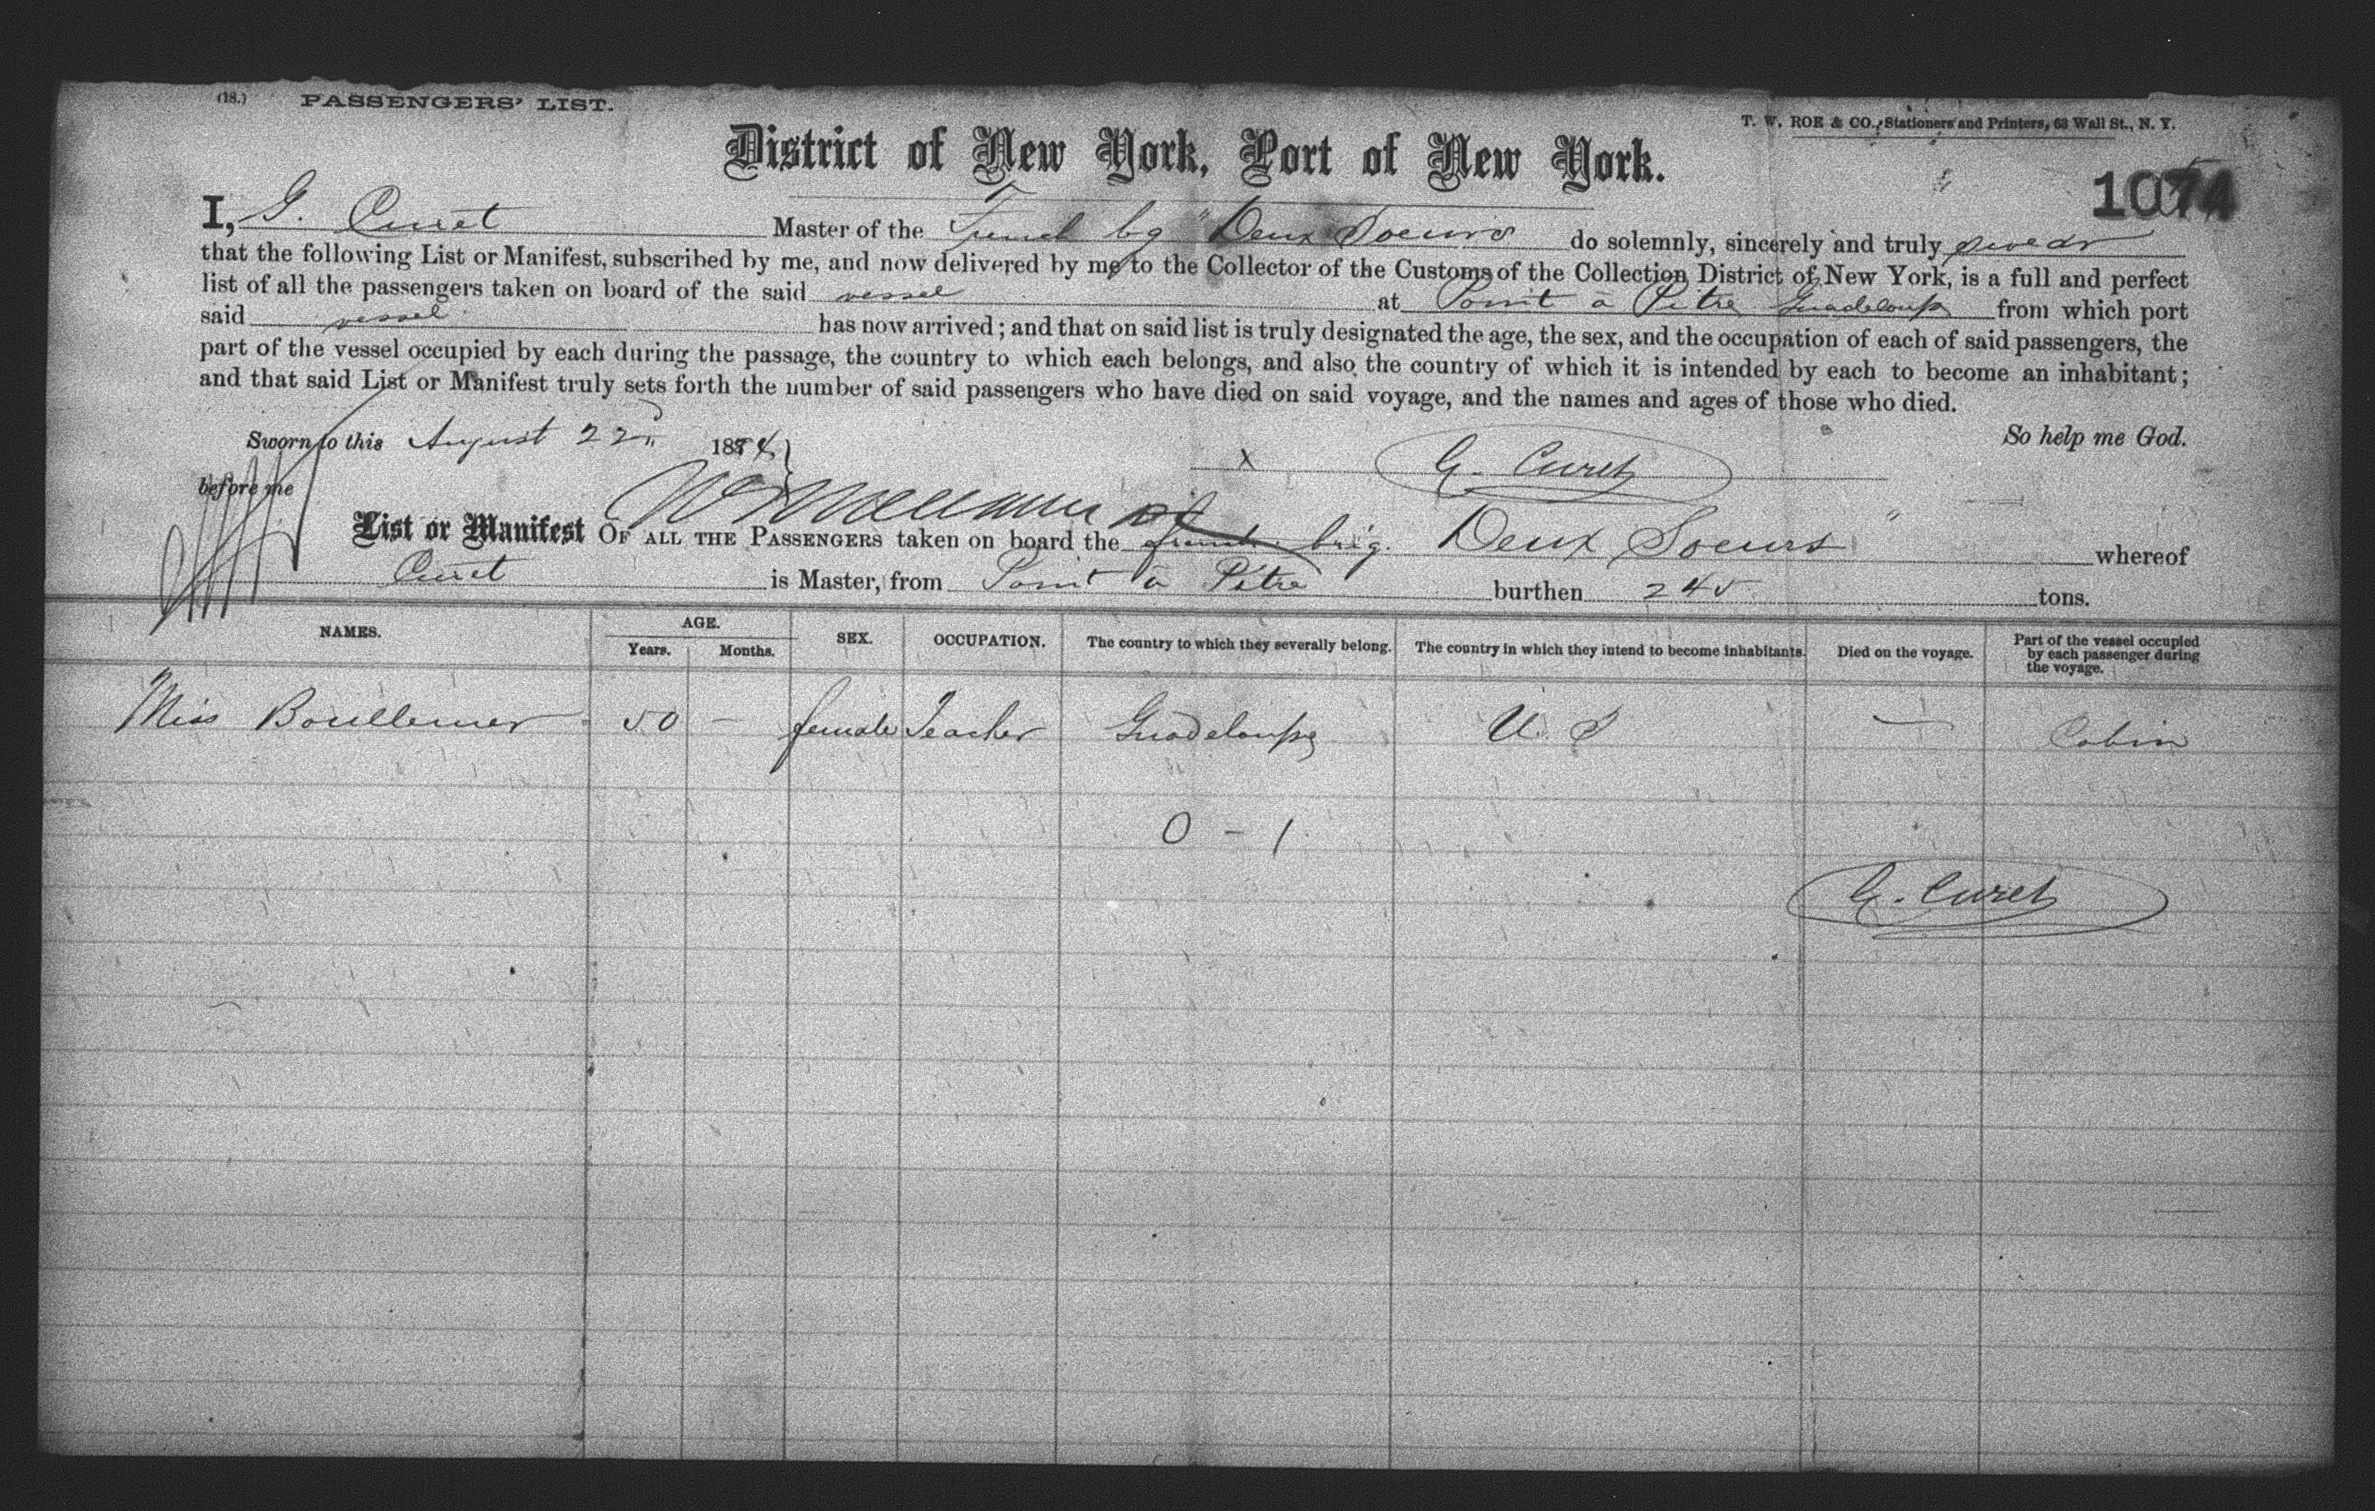 (18.) PASSENGERS' LIST.
T. W. ROE & CO., Stationers and Printers, 63 Wall St., N. Y.
District of New York, Port of New York.
1074
I, G. Curet Master of the French bg "Deux Soeurs do solemnly, sincerely and truly swear
that the following List or Manifest, subscribed by me, and now delivered by me to the Collector of the Customs of the Collection District of New York, is a full and perfect
list of all the passengers taken on board of the said vessel at Point a Pitre Guadeloupe from which port
said vessel has now arrived; and that on said list is truly designated the age, the sex, and the occupation of each of said passengers, the
part of the vessel occupied by each during the passage, the country to which each belongs, and also the country of which it is intended by each to become an inhabitant;
and that said List or Manifest truly sets forth the number of said passengers who have died on said voyage, and the names and ages of those who died.
Sworn to this August 22 1884 So help me God.
before me x G. Curet
List or Manifest OF ALL THE PASSENGERS taken on board the french brig. Deux Soeurs " whereof
Curet is Master, from Point a Pitre burthen 245 tons.
NAMES. AGE. Years. Months. SEX. OCCUPATION. The country to which they severally belong. The country in which they intend to become inhabitants. Died on the voyage. Part of the vessel occupied by each passenger during the voyage.
Miss Boullemer 50 – female Teacher Guadeloupe U. S — Cabin
0 - 1
G. Curet